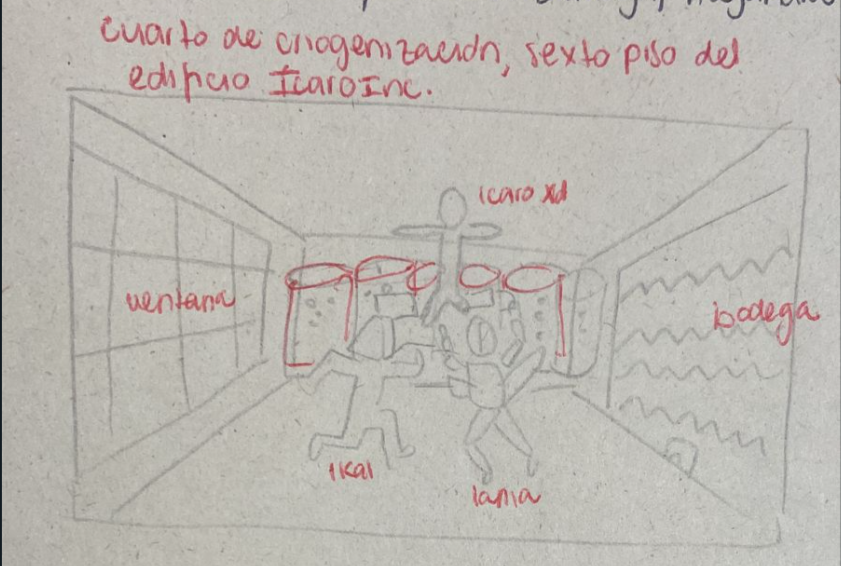 cuarto de criogenización, sexto piso del
edificio IcaroInc.
icaro xd
ventana
bodega
ikal